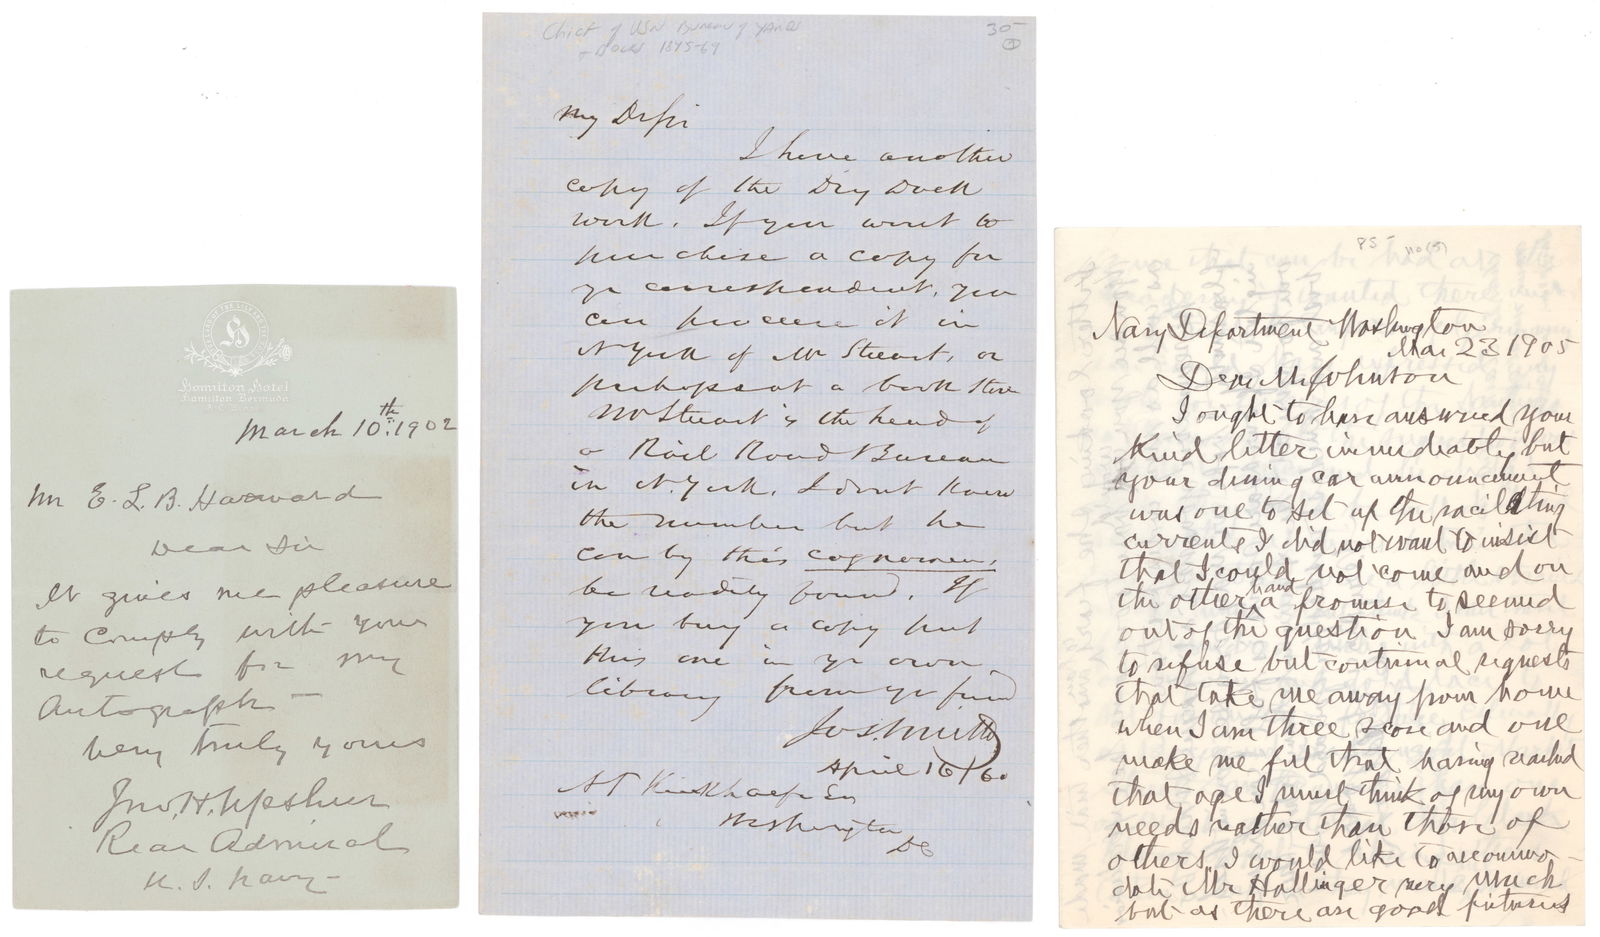 Hamilton Hotel
Hamilton Bermuda
March 10th 1902
Mr E. L. B. Harward
Dear Sir
It gives me pleasure
to comply with your
request for my
Autograph —
Very truly yours
Jno. H. Upshur
Rear Admiral
U. S. Navy —
Chief of USN Bureau of Yards
+ Docks 1845-69
30-
My D Sir
I have another
copy of the Dry Dock
work. If you want to
purchase a copy for
yr correspondent, you
can procure it in
N York of Mr Stuart, or
perhaps at a book store
Mr Stuart is the head of
a Rail Road Bureau
in N. York, I don't know
the number but he
can by this cognomen,
be readily found. If
you buy a copy put
this one in yr own
library from yr friend
Jos. Smith
April 16/60
Washington
DC
PS-
no (5)
Navy Department Washington
Mar 23 1905
Dear Mr Johnston
I ought to have answered your
kind letter immediately but
your dining car announcement
was one to set up the vacillating
currents I did not want to insist
that I could not come and on
the other hand a promise to seemed
out of the question I am sorry
to refuse but continual requests
that take me away from home
when I am three score and one
make me feel that having reached
that age I must think of my own
needs rather than those of
others, I would like to accommo-
date Mr Hollinger very much
but as there are good pictures